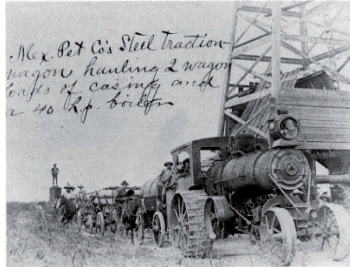 Mex. Pet Co's Steel traction
wagon hauling 2 wagon
loads of casing and
a 40 h.p. boiler